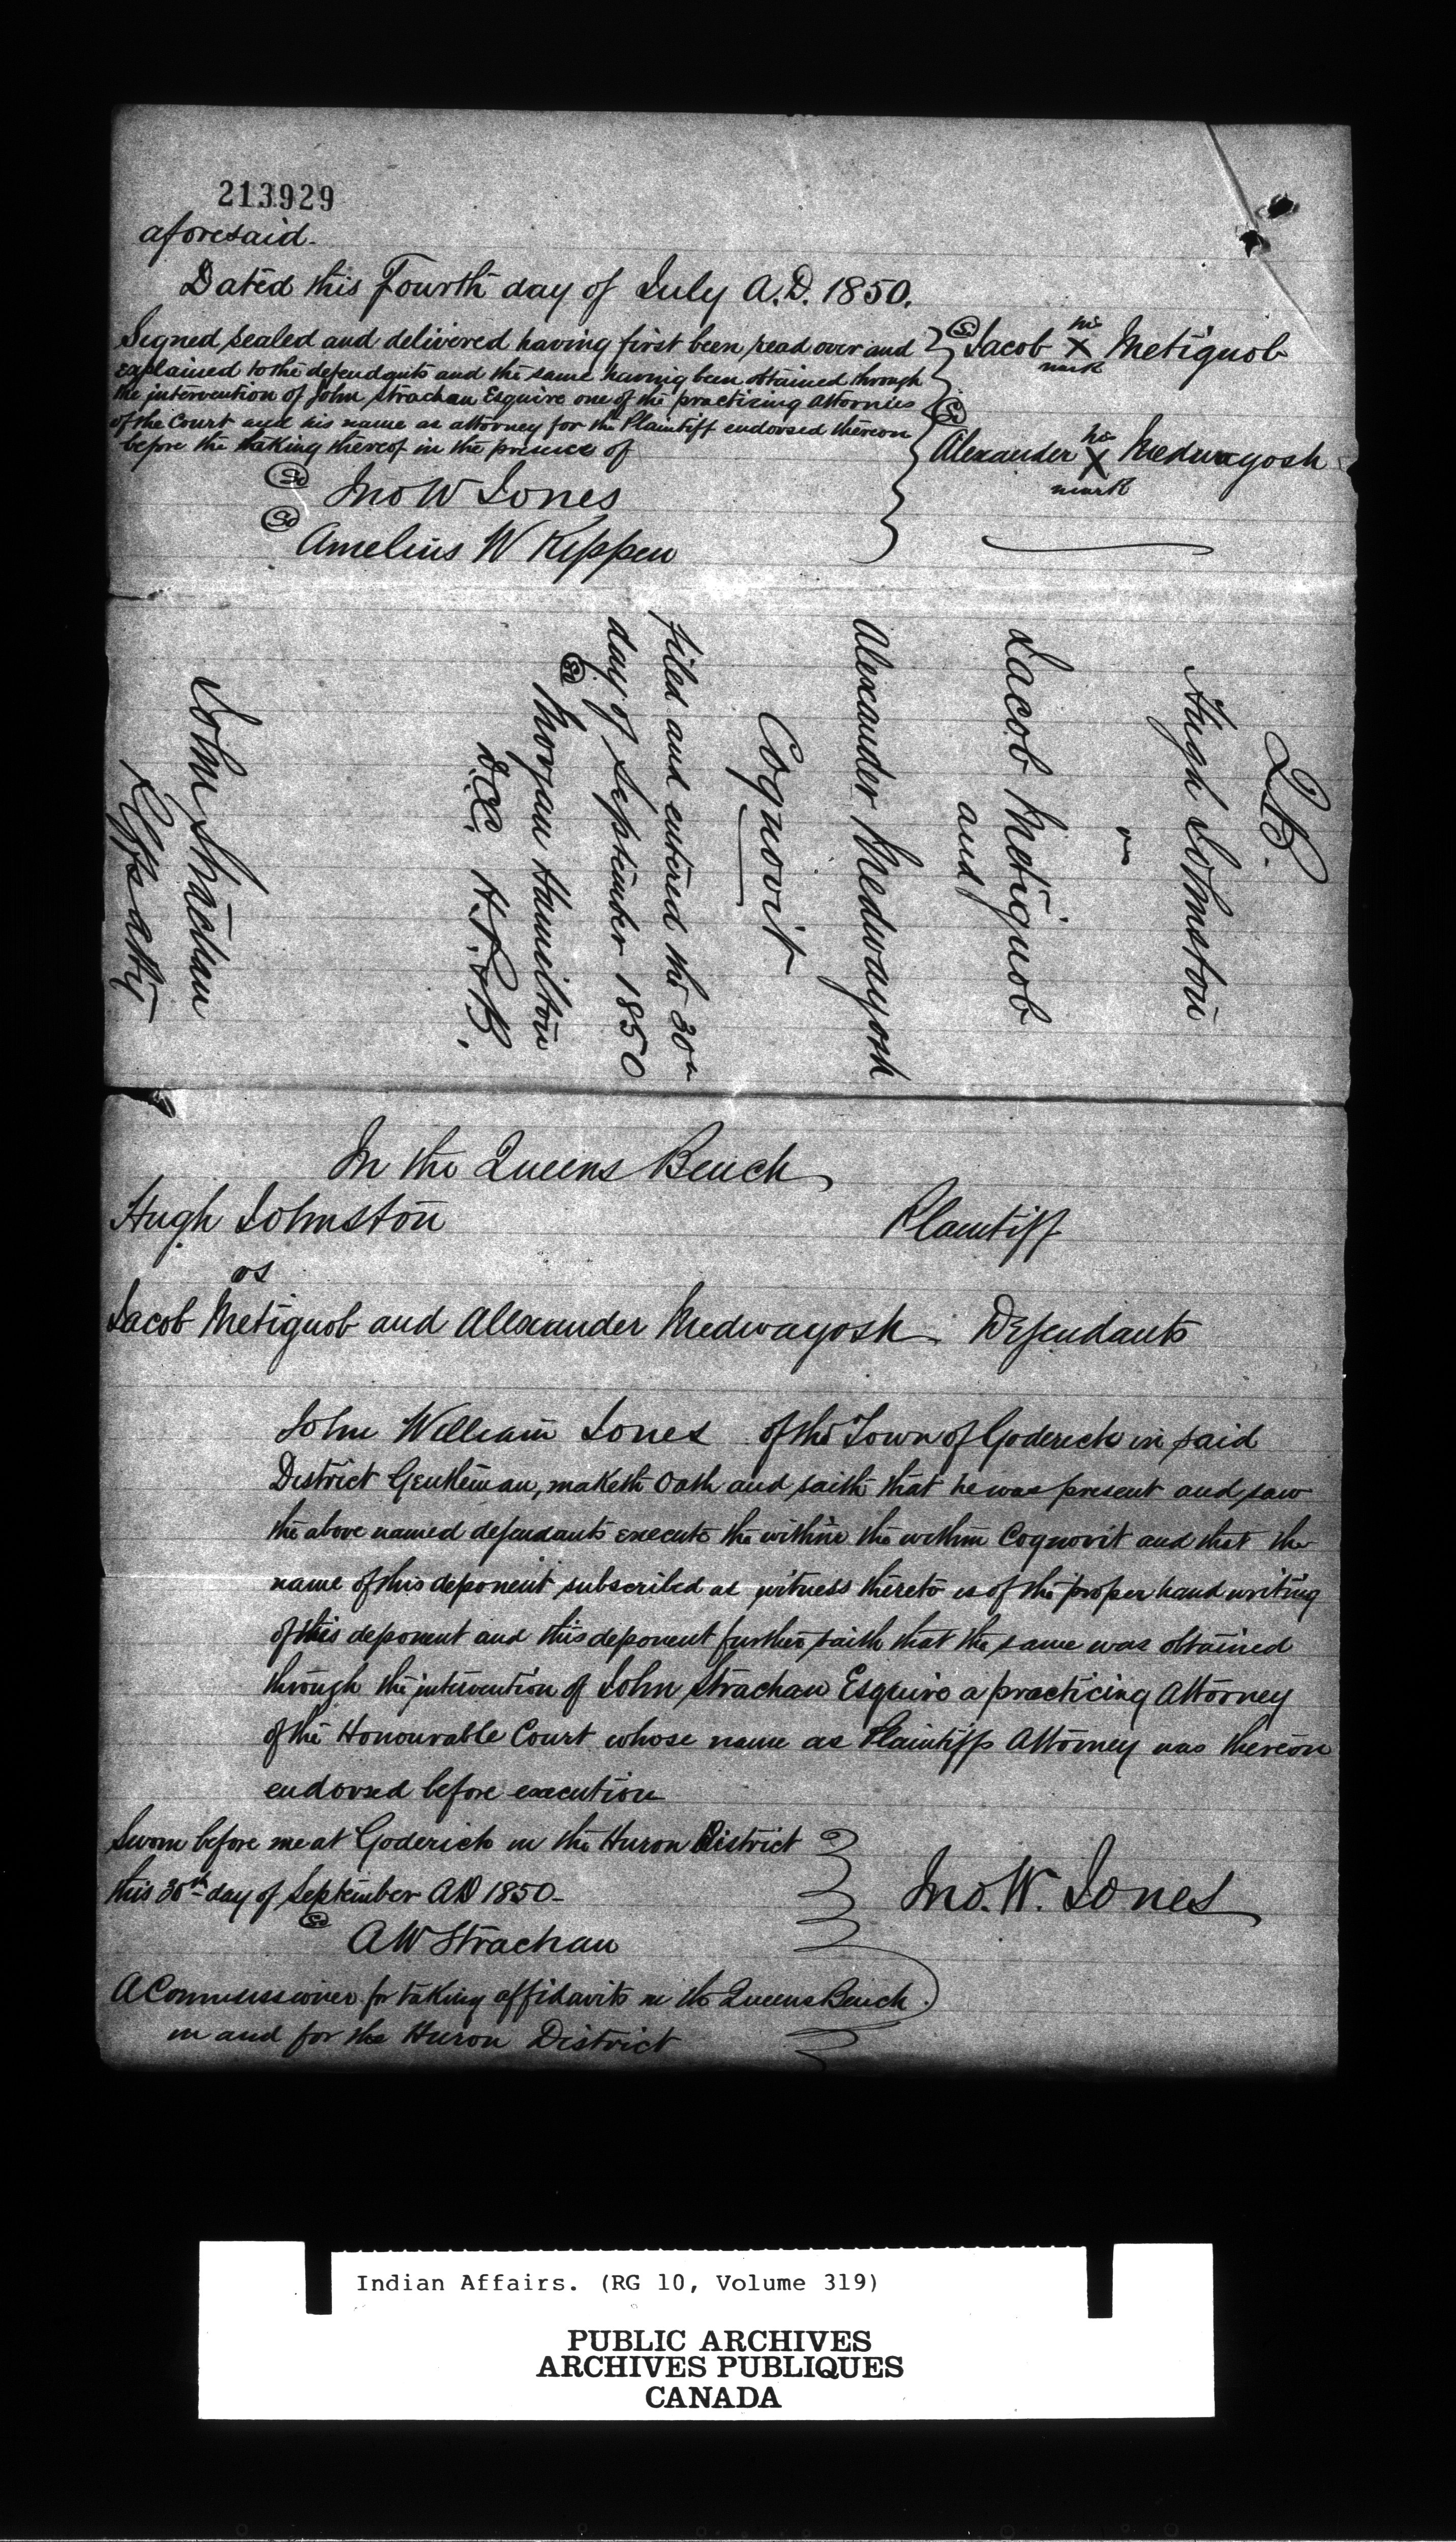 213929
aforesaid.
Dated this Fourth day of July A.D. 1850.
Signed sealed and delivered having first been read over and
explained to the defendants and the same having been obtained through
the intervention of John Strachan Esquire one of the practising Attornies
of the Court and his name as attorney for the Plaintiff endorsed thereon
before the making thereof in the presence of
Sd Jno W Jones
Sd Amelius W Kippen
Sd Jacob his X mark Metiguob
Sd Alexander his X mark Medwayosh
Q.B.
Hugh Johnston
vs
Jacob Metiguob
and
Alexander Medwayosh
Cognovit
filed and entered the 30th
day of September 1850
Sd Morgan Hamilton
H.D.
John Strachan
Plffs atty
In the Queens Bench
Hugh Johnston Plaintiff
vs
Jacob Metiguob and Alexander Medwayosh. Defendants
John William Jones of the Town of Goderich in said
District Gentleman, maketh Oath and saith that he was present and saw
the above named defendants execute the within the within Cognovit and that the
name of this deponent subscribed as witness thereto is of the proper hand writing
of this deponent and this deponent further saith that the same was obtained
through the intervention of John Strachan Esquire a practicing Attorney
of the Honourable Court whose name as Plaintiffs Attorney was thereon
endorsed before execution
Sworn before me at Goderich in the Huron District
this 30th day of September AD 1850-
Sd
A W Strachan
A Commissioner for taking affidavits in the Queens Bench
in and for the Huron District
Jno. W. Jones
Indian Affairs. (RG 10, Volume 319)
PUBLIC ARCHIVES
ARCHIVES PUBLIQUES
CANADA